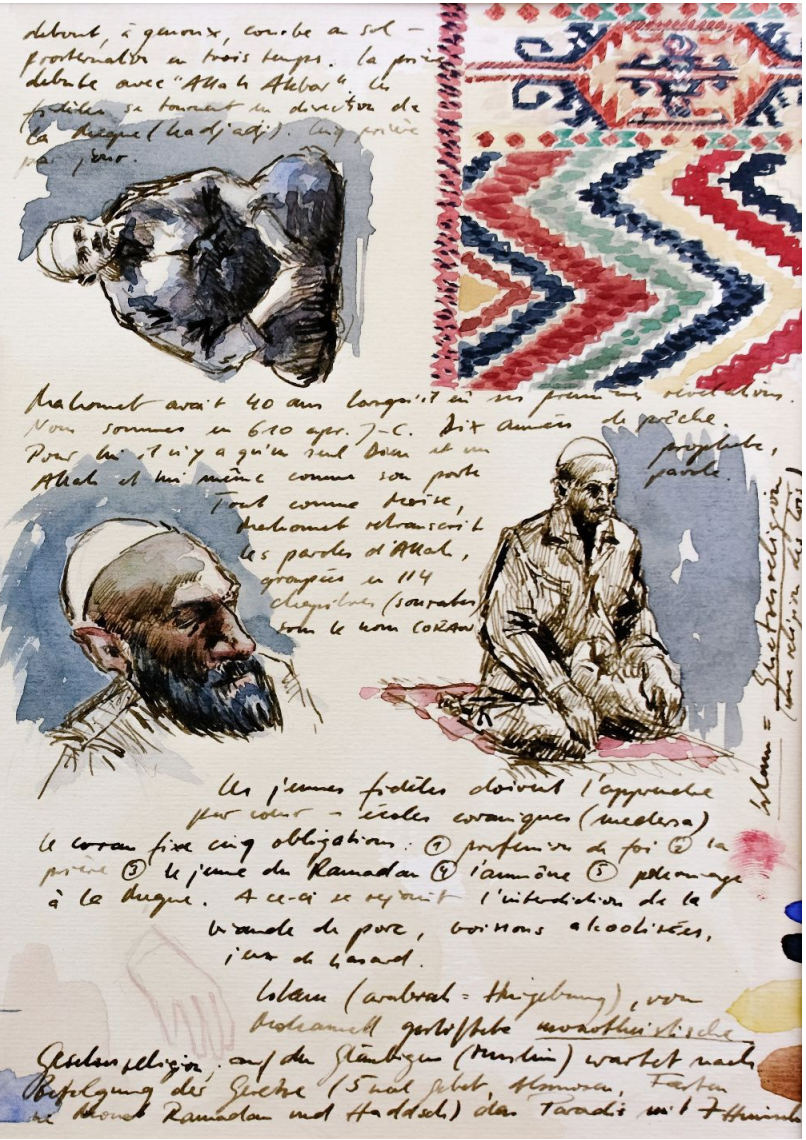 debout, à genoux, courbé au sol –
prosternation en trois temps. La prière
débute avec "Allah Akbar". Les
fidèles se tournent en direction de
la Mecque (hadjadj). Cinq prière
par jour.
Mahomet avait 40 ans lorsqu'il ses premières révélations.
Nous sommes en 610 apr. J-C. Dix années de prêche.
Pour lui il n'y a qu'un seul Dieu et un prophète,
Allah et lui même comme son porte parole.
Tout comme Moïse,
Mahomet retranscrit
les paroles d'Allah,
groupées en 114
chapitres (sourates)
sous le nom CORAN
Islam = Gesetzesreligion
(une religion des lois)
Les jeunes fidèles doivent l'apprendre
par cœur – écoles coraniques (medersa)
Le coran fixe cinq obligations : ① profession de foi ② la
prière ③ le jeune du Ramadan ④ l'aumône ⑤ pélerinage
à la Mecque. A ce-ci se rejoint l'interdiction de la
viande de porc, boissons alcoolisées,
jeux de hasard.
Islam (arabisch = Hingebung), von
Mohamed gestiftete monotheistische
Gesetzesreligion. auf den Gläubigen (Muslim) wartet nach
Befolgung der Gesetze (5 mal Gebet, Almosen, Fasten
Monat Ramadan und Haddsch) das Paradis mit 7 Himmeln